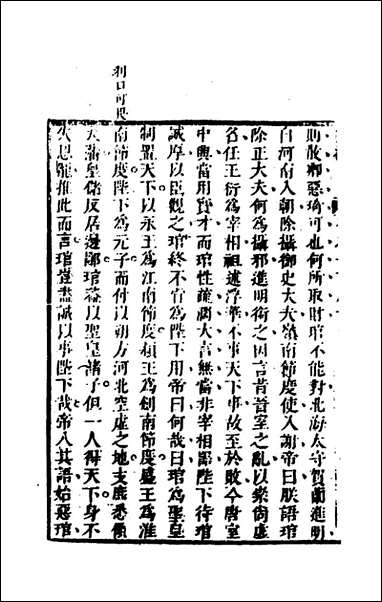 利口可畏
則故辯惡琦可也何所取財琯不能對北海太守賀蘭進明
自河南入朝除攝御史大夫嶺南節度使入謝帝曰朕語琯
除正大夫何爲攝邪進明銜之因言昔晉室之亂以崇尚虛
名任王衍爲宰相祖述浮華不事天下事故至於敗今唐室
中興當用實才而琯性疏闊大言無當非宰相器陛下待琯
誠厚以臣觀之琯終不肯爲陛下用帝曰何哉曰琯爲聖皇
制置天下以永王爲江南節度潁王爲劍南節度盛王爲淮
南節度陛下爲元子而付以朔方河北空虛之地支庶悉領
大藩皇儲反居邊鄙琯蓋以聖皇諸子但一人得天下身不
失恩寵推此而言琯豈盡誠以事陛下哉帝入其語始惡琯